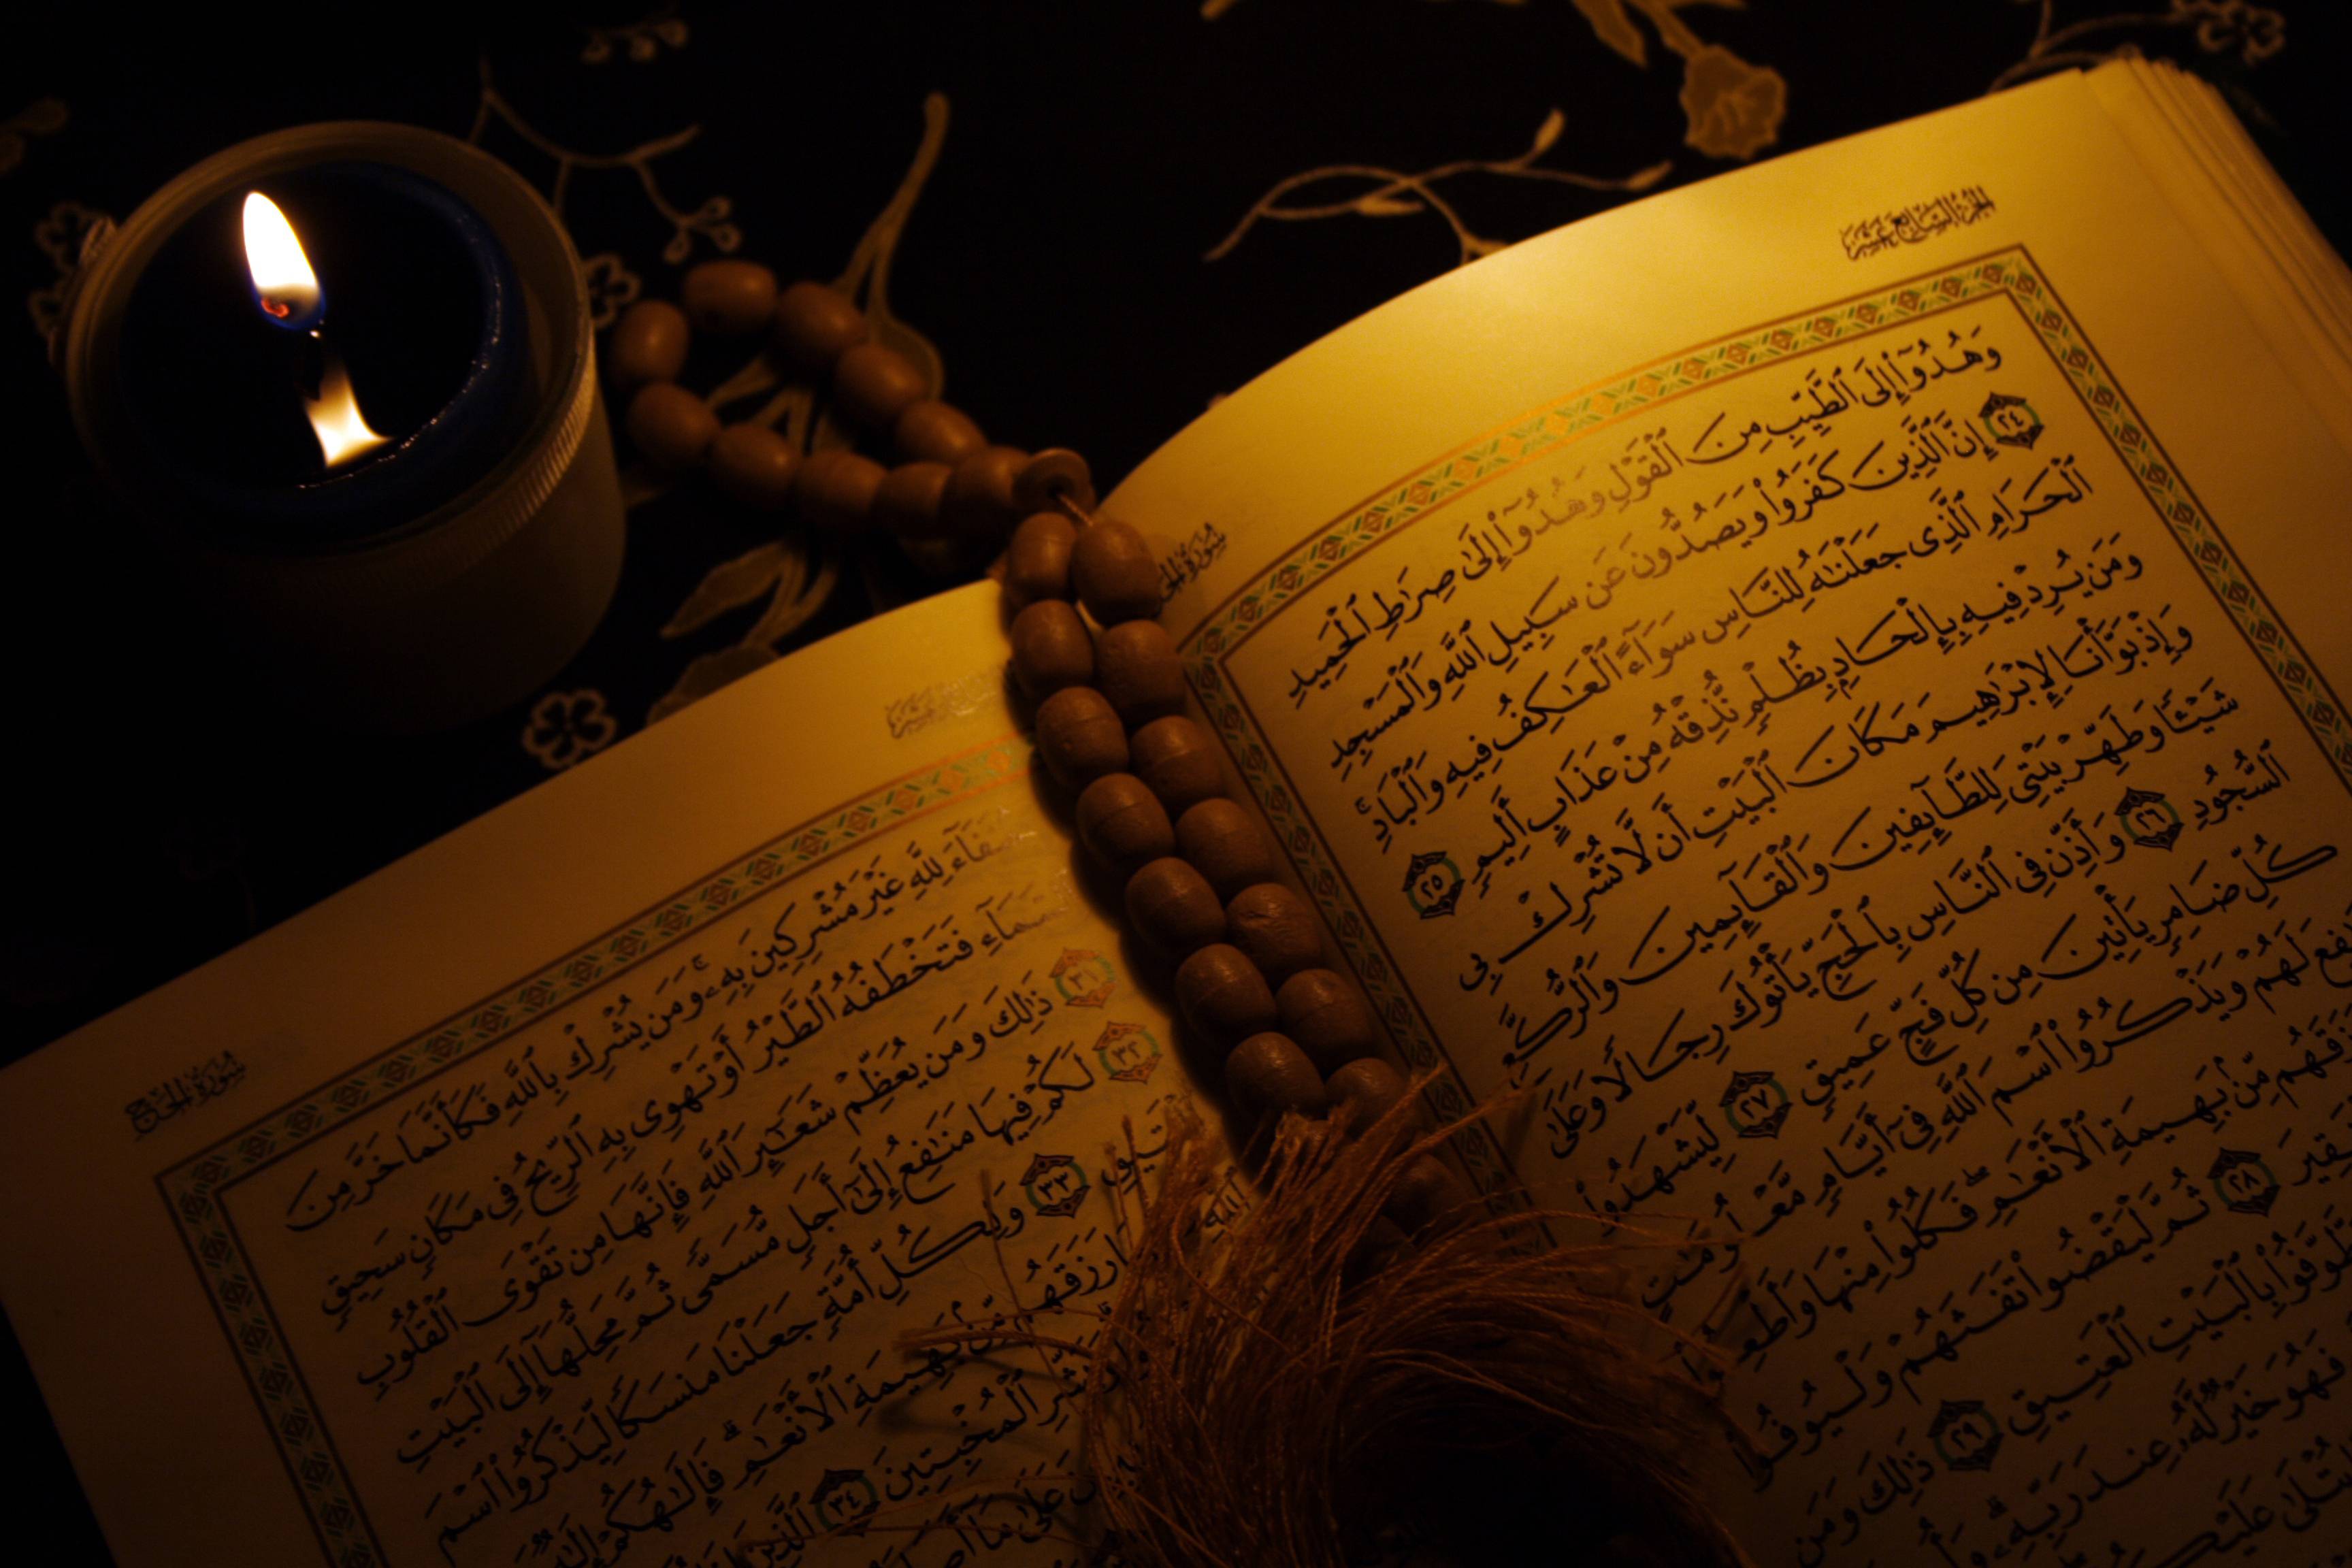 الجزء السابع عشر
سورة الحج
وَهُدُوٓا۟ إِلَى ٱلطَّيِّبِ مِنَ ٱلْقَوْلِ وَهُدُوٓا۟ إِلَىٰ صِرَٰطِ ٱلْحَمِيدِ
٢٤ إِنَّ ٱلَّذِينَ كَفَرُوا۟ وَيَصُدُّونَ عَن سَبِيلِ ٱللَّهِ وَٱلْمَسْجِدِ
ٱلْحَرَامِ ٱلَّذِى جَعَلْنَٰهُ لِلنَّاسِ سَوَآءً ٱلْعَٰكِفُ فِيهِ وَٱلْبَادِ ۚ
وَمَن يُرِدْ فِيهِ بِإِلْحَادٍۭ بِظُلْمٍ نُّذِقْهُ مِنْ عَذَابٍ أَلِيمٍ ٢٥
وَإِذْ بَوَّأْنَا لِإِبْرَٰهِيمَ مَكَانَ ٱلْبَيْتِ أَن لَّا تُشْرِكْ بِى
شَيْـًٔا وَطَهِّرْ بَيْتِىَ لِلطَّآئِفِينَ وَٱلْقَآئِمِينَ وَٱلرُّكَّعِ
ٱلسُّجُودِ ٢٦ وَأَذِّن فِى ٱلنَّاسِ بِٱلْحَجِّ يَأْتُوكَ رِجَالًا وَعَلَىٰ
كُلِّ ضَامِرٍ يَأْتِينَ مِن كُلِّ فَجٍّ عَمِيقٍ ٢٧ لِّيَشْهَدُوا۟
لَهُمْ وَيَذْكُرُوا۟ ٱسْمَ ٱللَّهِ فِىٓ أَيَّامٍ مَّعْلُومَٰتٍ
مِّنۢ بَهِيمَةِ ٱلْأَنْعَٰمِ ۖ فَكُلُوا۟ مِنْهَا وَأَطْعِمُوا۟
٢٨ ثُمَّ لْيَقْضُوا۟ تَفَثَهُمْ وَلْيُوفُوا۟
بِٱلْبَيْتِ ٱلْعَتِيقِ ٢٩ ذَٰلِكَ وَمَن
فَهُوَ خَيْرٌ لَّهُۥ عِندَ رَبِّهِۦ ۗ
يُتْلَىٰ عَلَيْكُمْ
سورة الحج
لِلَّهِ غَيْرَ مُشْرِكِينَ بِهِۦ ۚ وَمَن يُشْرِكْ بِٱللَّهِ فَكَأَنَّمَا خَرَّ مِنَ
ٱلسَّمَآءِ فَتَخْطَفُهُ ٱلطَّيْرُ أَوْ تَهْوِى بِهِ ٱلرِّيحُ فِى مَكَانٍ سَحِيقٍ
٣١ ذَٰلِكَ وَمَن يُعَظِّمْ شَعَٰٓئِرَ ٱللَّهِ فَإِنَّهَا مِن تَقْوَى ٱلْقُلُوبِ
٣٢ لَكُمْ فِيهَا مَنَٰفِعُ إِلَىٰٓ أَجَلٍ مُّسَمًّى ثُمَّ مَحِلُّهَآ إِلَى ٱلْبَيْتِ
٣٣ وَلِكُلِّ أُمَّةٍ جَعَلْنَا مَنسَكًا لِّيَذْكُرُوا۟ ٱسْمَ
ٱللَّهِ رَزَقَهُم مِّنۢ بَهِيمَةِ ٱلْأَنْعَٰمِ ۗ فَإِلَٰهُكُمْ إِلَٰهٌ
ٱلْمُخْبِتِينَ ٣٤ ٱلَّذِينَ
عَلَىٰ مَآ